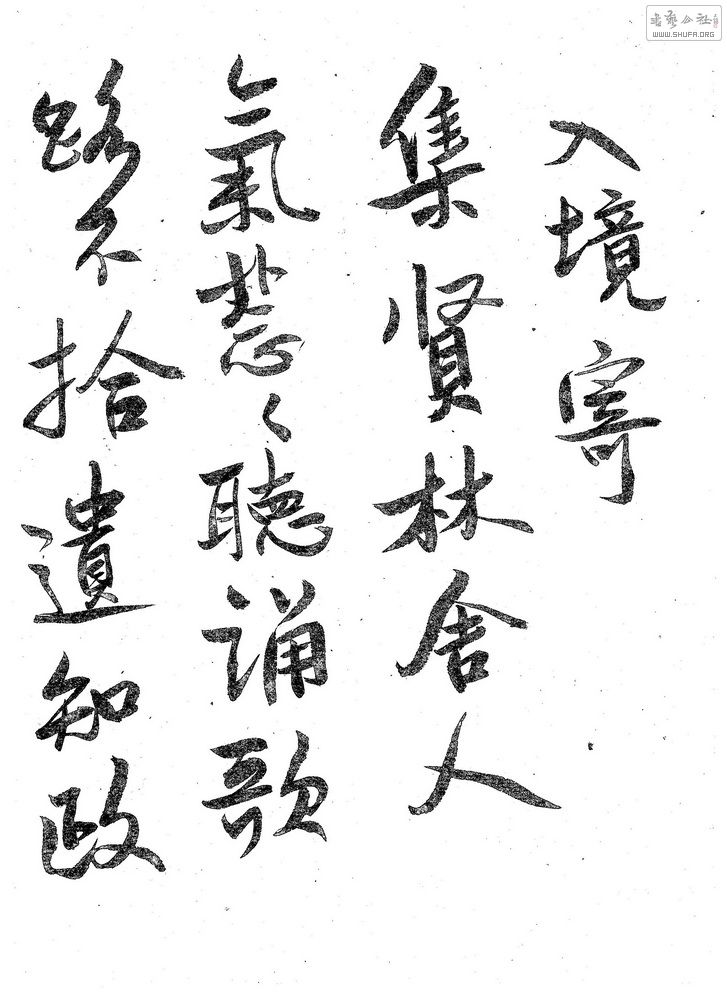 入境寄
集賢林舍人
氣葱〻聽誦歌
路不拾遺知政
書藝公社
WWW.SHUFA.ORG